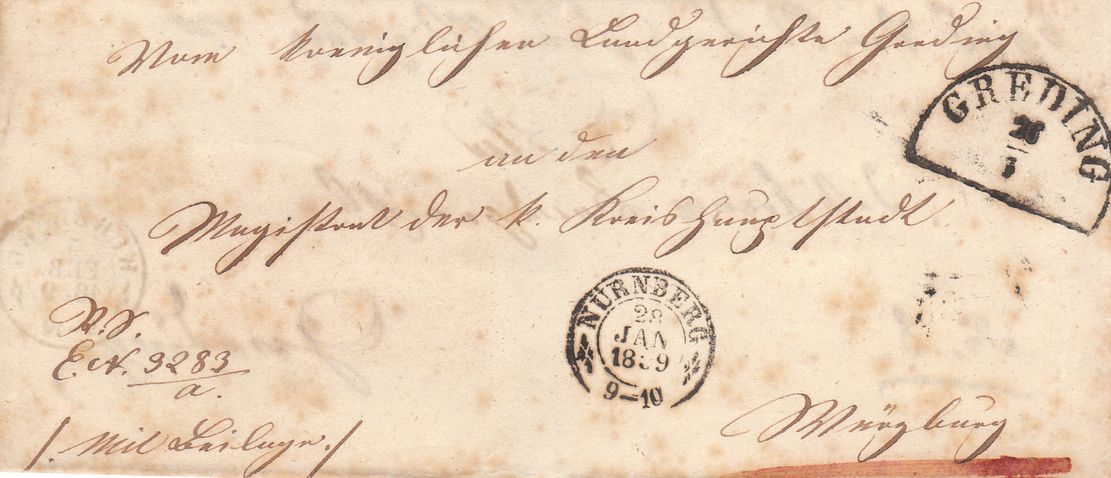 Vom koeniglichen Landgerichte Greding
GREDING
26
1
an den
Magistrat der k. Kreishauptstadt
NÜRNBERG
28
JAN
1859
9-10
R. S.
E. N. 3283
a.
/. Mit Beilage. /
Würzburg